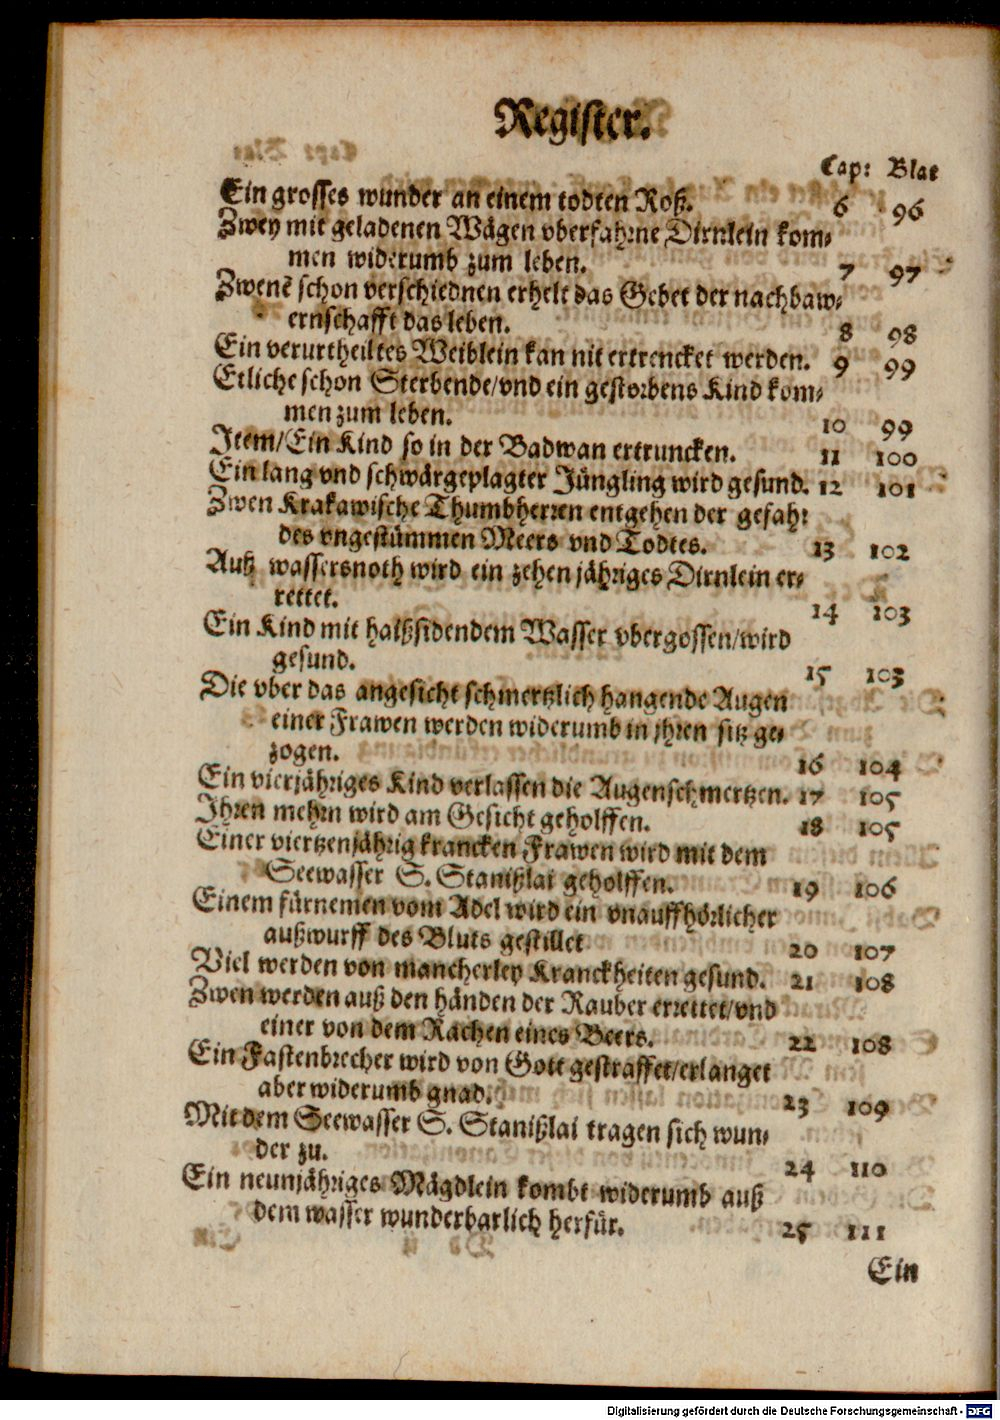 Register.
Cap: Blat
Ein grosses wunder an einem todten Roß. 6 96
Zwey mit geladenen Wägen vberfahrne Dirnlein kom-
men widerumb zum leben. 7 97
Zwenē schon verschiednen erhelt das Gebet der nachbaw-
ernschafft das leben. 8 98
Ein verurtheiltes Weiblein kan nit ertrencket werden. 9 99
Etliche schon Sterbende/vnd ein gestorbens Kind kom-
men zum leben. 10 99
Item/Ein Kind so in der Badwan ertruncken. 11 100
Ein lang vnd schwärgeplagter Jüngling wird gesund. 12 101
Zwen Krakawische Thumbherren entgehen der gefahr
des vngestümmen Meers vnd Todtes. 13 102
Auß wassersnoth wird ein zehen jähriges Dirnlein er-
rettet. 14 103
Ein Kind mit haißsidendem Wasser vbergossen/wird
gesund. 15 103
Die vber das angesicht schmertzlich hangende Augen
einer Frawen werden widerumb in jhren sitz ge-
zogen. 16 104
Ein vierjähriges Kind verlassen die Augenschmertzen. 17 105
Ihren mehrn wird am Gesicht geholffen. 18 105
Einer viertzenjährig krancken Frawen wird mit dem
Seewasser S. Stanißlai geholffen. 19 106
Einem fürnemen vom Adel wird ein vnauffhörlicher
außwurff des Bluts gestillet 20 107
Viel werden von mancherley Kranckheiten gesund. 21 108
Zwen werden auß den händen der Rauber errettet/vnd
einer von dem Rachen eines Beers. 22 108
Ein Fastenbrecher wird von Gott gestraffet/erlanget
aber widerumb gnad. 23 109
Mit dem Seewasser S. Stanißlai tragen sich wun-
der zu. 24 110
Ein neunjähriges Mägdlein kombt widerumb auß
dem wasser wunderbarlich herfür. 25 111
Ein
Digitalisierung gefördert durch die Deutsche Forschungsgemeinschaft - DFG